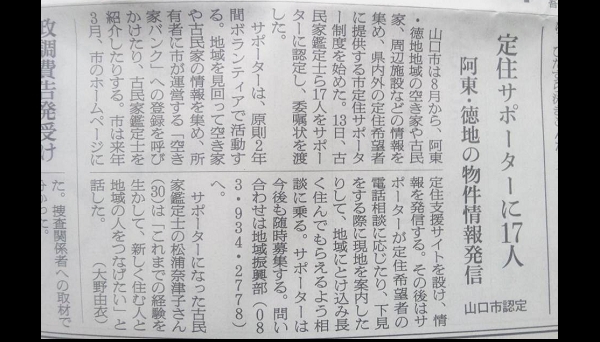 定住サポーターに17人
阿東・徳地の物件情報発信
山口市認定
山口市は8月から、阿東
・徳地地域の空き家や古民
家、周辺施設などの情報を
集め、県内外の定住希望者
に提供する市定住サポータ
ー制度を始めた。13日、古
民家鑑定士ら17人をサポー
ターに認定し、委嘱状を渡
した。
サポーターは、原則2年
間ボランティアで活動す
る。地域を見回って空き家
や古民家の情報を集め、所
有者に市が運営する「空き
家バンク」への登録を呼び
かけたり、古民家鑑定士を
紹介したりする。市は来年
3月、市のホームページに
定住支援サイトを設け、情
報を発信する。その後はサ
ポーターが定住希望者の
電話相談に応じたり、下見
をする際に現地を案内した
りして、地域にとけ込み長
く住んでもらえるよう相
談に乗る。サポーターは
今後も随時募集する。問い
合わせは地域振興部（08
3・934・2778）
へ。
サポーターになった古民
家鑑定士の松浦奈津子さん
（30）は「これまでの経験を
生かして、新しく住む人と
地域の人をつなげたい」と
話した。（大野由衣）
政調費告発受け
た。捜査関係者への取材で